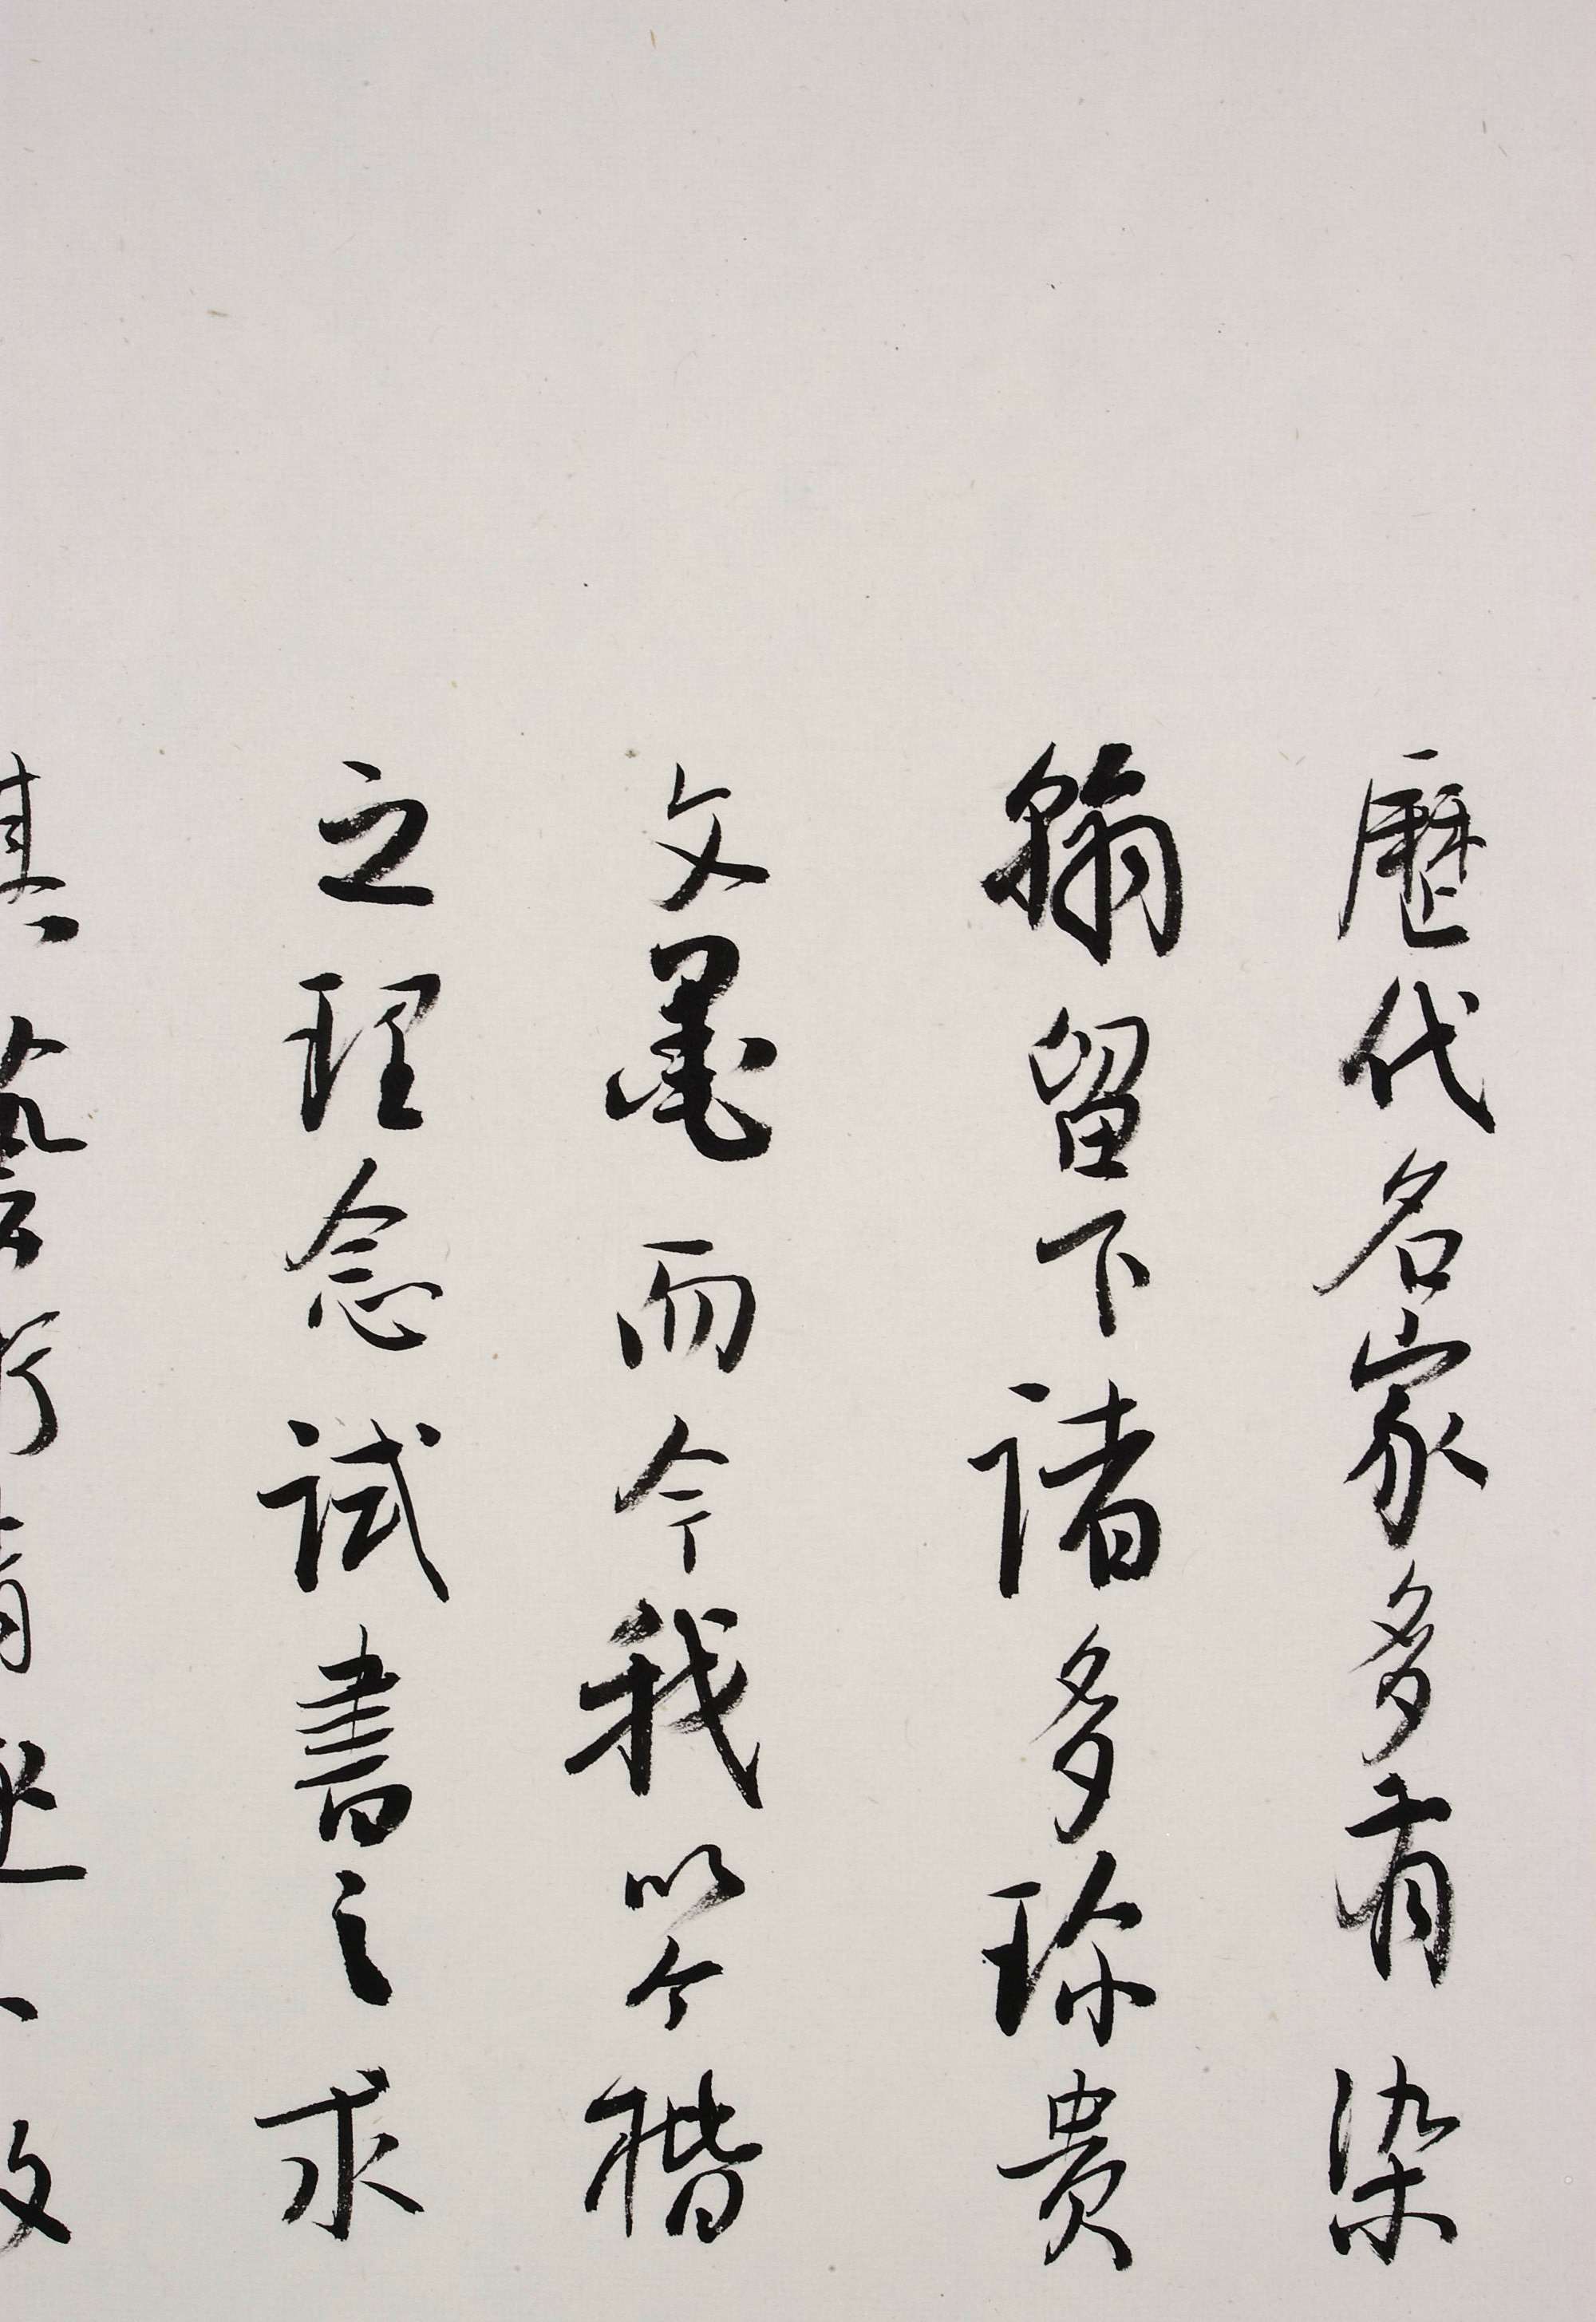 歷代名家多有染
翰留下諸多珎贵
文墨而今我以今楷
之理念試書之求
其藝行情迹